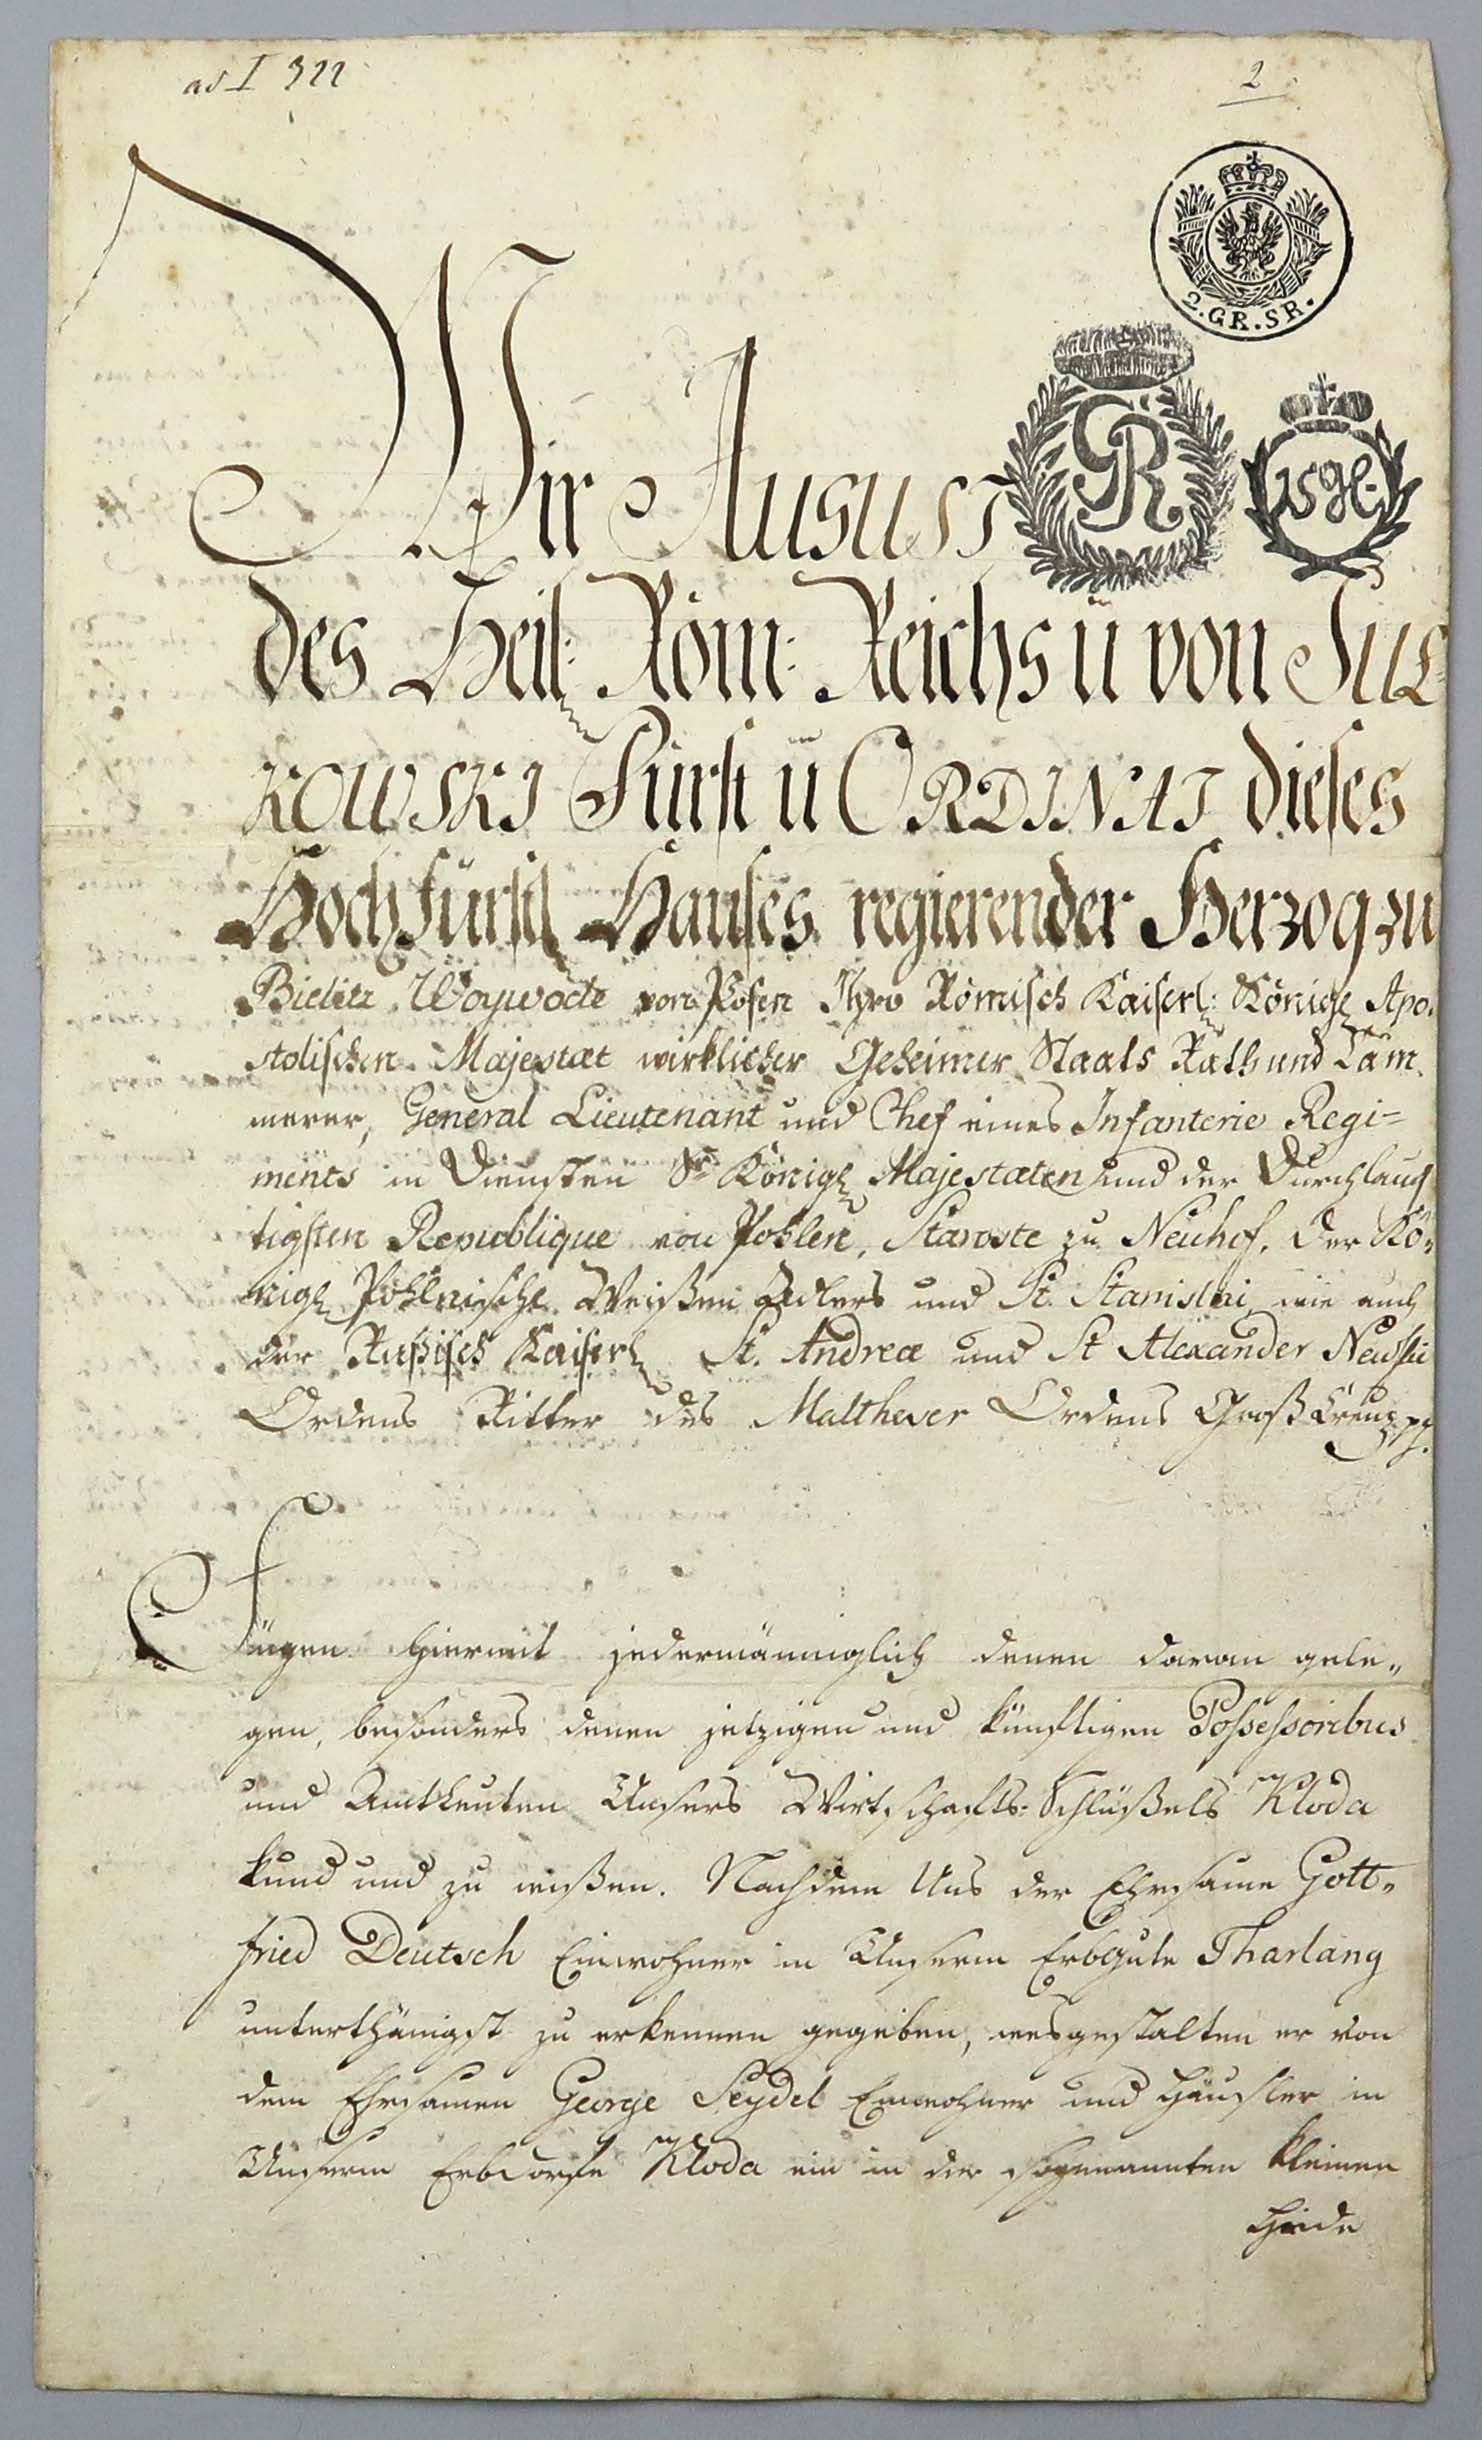 ad I 322
2
2.GR.SR.
GR
15 gl.
Wir August
des Heil: Röm: Reichs ü von Sul=
KOWSKI Fürst ü ORDINAT dieses
Hochfürstl Hauses regierender Herzog zu
Bielitz Woywode von Posen Ihro Römisch Kaiserl: Königl Apo„
stolischen Majestæt wirklicher Geheimer Staats Rath und Cäm„
merer, General Lieutenant und Chef eines Infanterie Regi=
ments in Diensten Sr Königl Majestæten und der Durchlauch
tigsten Republique von Pohlen, Staroste zu Neuhof, der Kö„
nigl Pohlnische Weißen Adlers und St. Stanislai wie auch
der Rußisch Kaiserl St. Andreæ und St Alexander Newski
Ordens Ritter des Maltheser Ordens Groß Creuz pp.
Fügen hiermit jedermänniglich denen daran gele„
gen, besonders denen jetzigen und künftigen Possessoribus
und Amtleuten Unsers Wirtschafts-Schlüßels Kloda
kund und zu wißen. Nachdem Uns der Ehrsame Gott„
fried Deutsch Einwohner in Unserm Erbgute Tharlang
unterthänigst zu erkennen gegeben, wesgestalten er von
dem Ehrsamen George Seydel Einwohner und Häusler in
Unserm Erbdorfe Kloda ein in der sogenannten kleinen
Heide